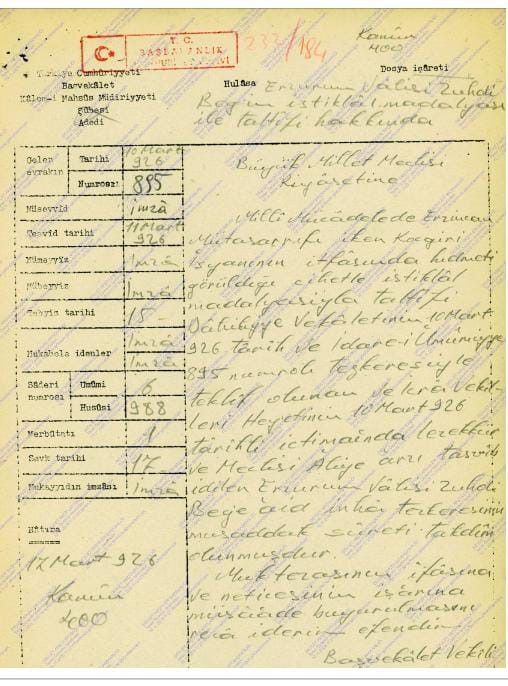 Kanûn
400
T. C.
BAŞBAKANLIK
232/184
Türkiye Cumhuriyyeti
Başvekâlet
Kâlem-i Mahsûs Müdiriyyeti
şûbesi
Adedi
Dosya işâreti
Hulâsa Erzurum Vâlisi Zuhdi
Beğ'in istiklâl madalyası
ile taltifi hakkında
Gelen evrakın
Tarihi 10 Mart 926
Numrosı 895
Müsevvid imzâ
Tesvid tarihi 11 Mart 926
Mümeyyiz imzâ
Mübeyyiz imzâ
Tebyiz tarihi 15
Mukabele idenler imzâ imzâ
Sâderi numrosı
Umûmi 6
Husûsi 988
Merbûtatı 1
Sevk tarihi 17
Mukayyidin imzâsı imzâ
Hâtıra
17 Mart 926
Kanûn
400
Büyük Millet Meclisi
Riyâsetine
Milli Mücâdelede Erzincan
Mutasarrıfı iken Koçgiri
isyanının itfâsında hidmeti
görüldiği cihetle istiklâl
madalyasiyla taltifi
Dâhiliyye Vekâletinin 10 Mart
926 târih ve İdare-i Umûmiyye
895 numrolı tezkeresiyle
teklif olunan ve İcra Vekil-
leri Heyetinin 10 Mart 926
tarihli ictimaında tezekkür
ve Meclisi Âliye arzı tasvib
idilen Erzurum Vâlisi Zuhdi
Beğe aid inha tezkeresinin
musaddak sûreti takdim
olunmuşdur.
Muktezasının ifâsına
ve neticesinin iş'arına
müsâade buyurulmasını
reca iderim efendim
Başvekâlet Vekili